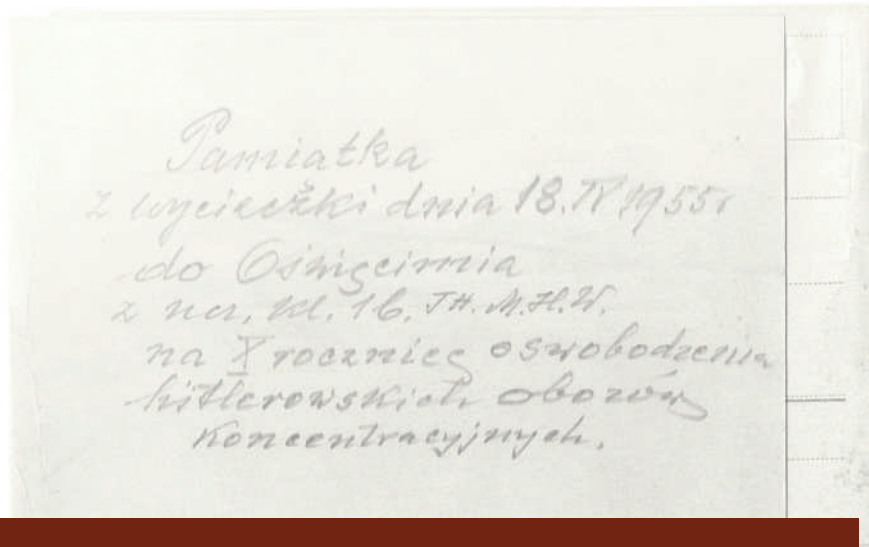 Pamiatka
z wycieczki dnia 18.IV 1955r
do Oświęcimia
z kl. 1b. T.H. M.H.W.
na X rocznicę oswobodzenia
hitlerowskich obozów
koncentracyjnych.